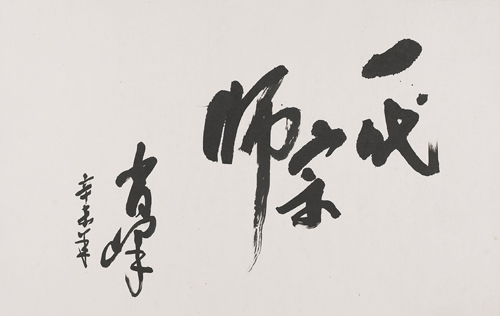 一代宗师
肖峰
辛未年